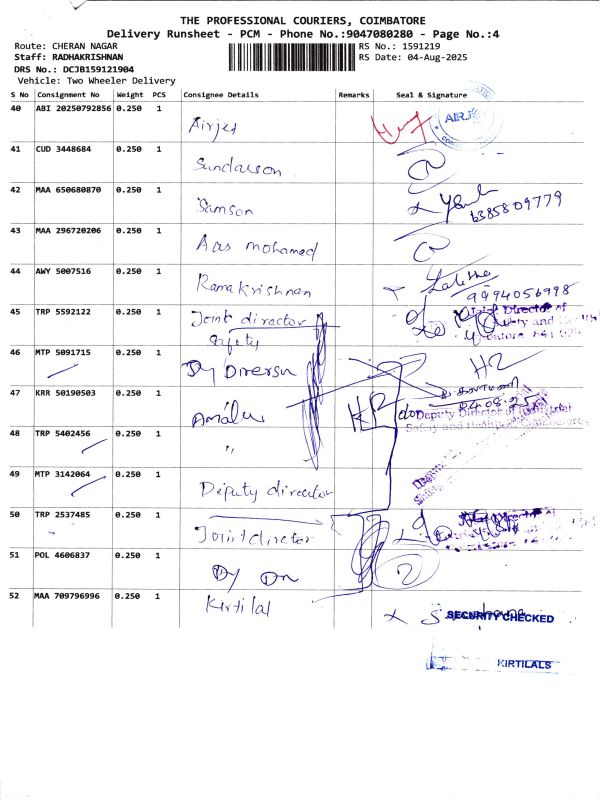 THE PROFESSIONAL COURIERS, COIMBATORE
Delivery Runsheet - PCM - Phone No.:9047080280 - Page No.:4
Route: CHERAN NAGAR RS No.: 1591219
Staff: RADHAKRISHNAN RS Date: 04-Aug-2025
DRS No.: DCJB159121904
Vehicle: Two Wheeler Delivery
S No Consignment No Weight PCS Consignee Details Remarks Seal & Signature
40 ABI 20250792856 0.250 1 Airjet AIRJ
41 CUD 3448684 0.250 1 Sundarson
42 MAA 650680870 0.250 1 Samson 6385809779
43 MAA 296720206 0.250 1 Aas mohamed
44 AWY 5007516 0.250 1 Ramakrishnan Lalitha 9994056998
45 TRP 5592122 0.250 1 Joint director Safety Joint Director of
46 MTP 5091715 0.250 1 HR
47 KRR 50190503 0.250 1 Deputy Director of
48 TRP 5402456 0.250 1 "
49 MTP 3142064 0.250 1 Deputy director
50 TRP 2537485 0.250 1 Joint director
51 POL 4606837 0.250 1 Dy
52 MAA 709796996 0.250 1 Kirtilal SECURITY CHECKED
KIRTILALS